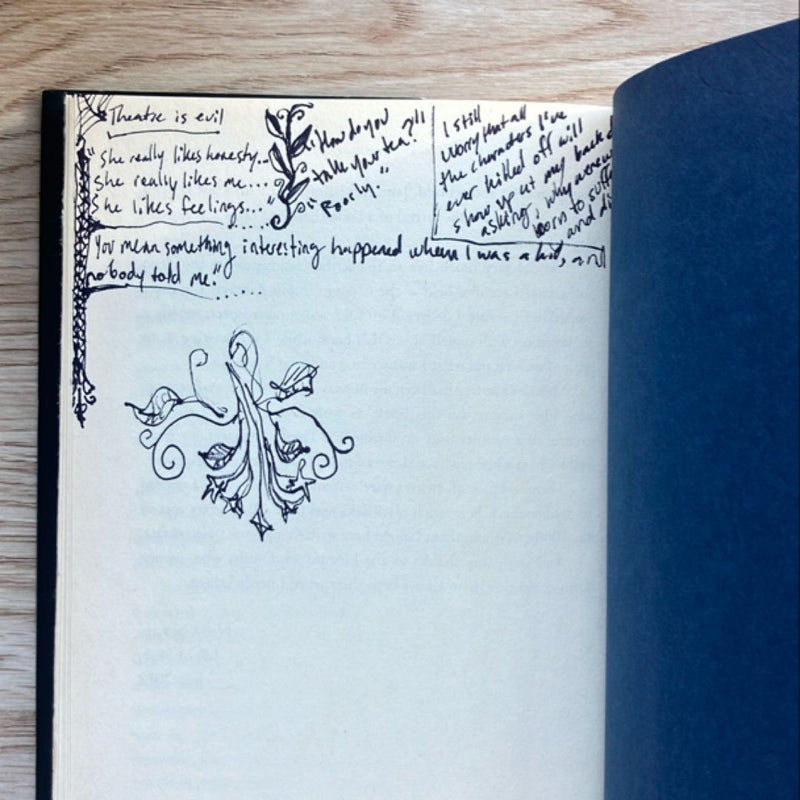 Theatre is evil
"She really likes honesty...
She really likes me...
She likes feelings..."
"How do you
take your tea?"
"Poorly."
I still
worry that all
the characters I've
ever killed off will
show up at my back
asking, why were
born to
and
You mean something interesting happened when I was a kid, and
nobody told me?"